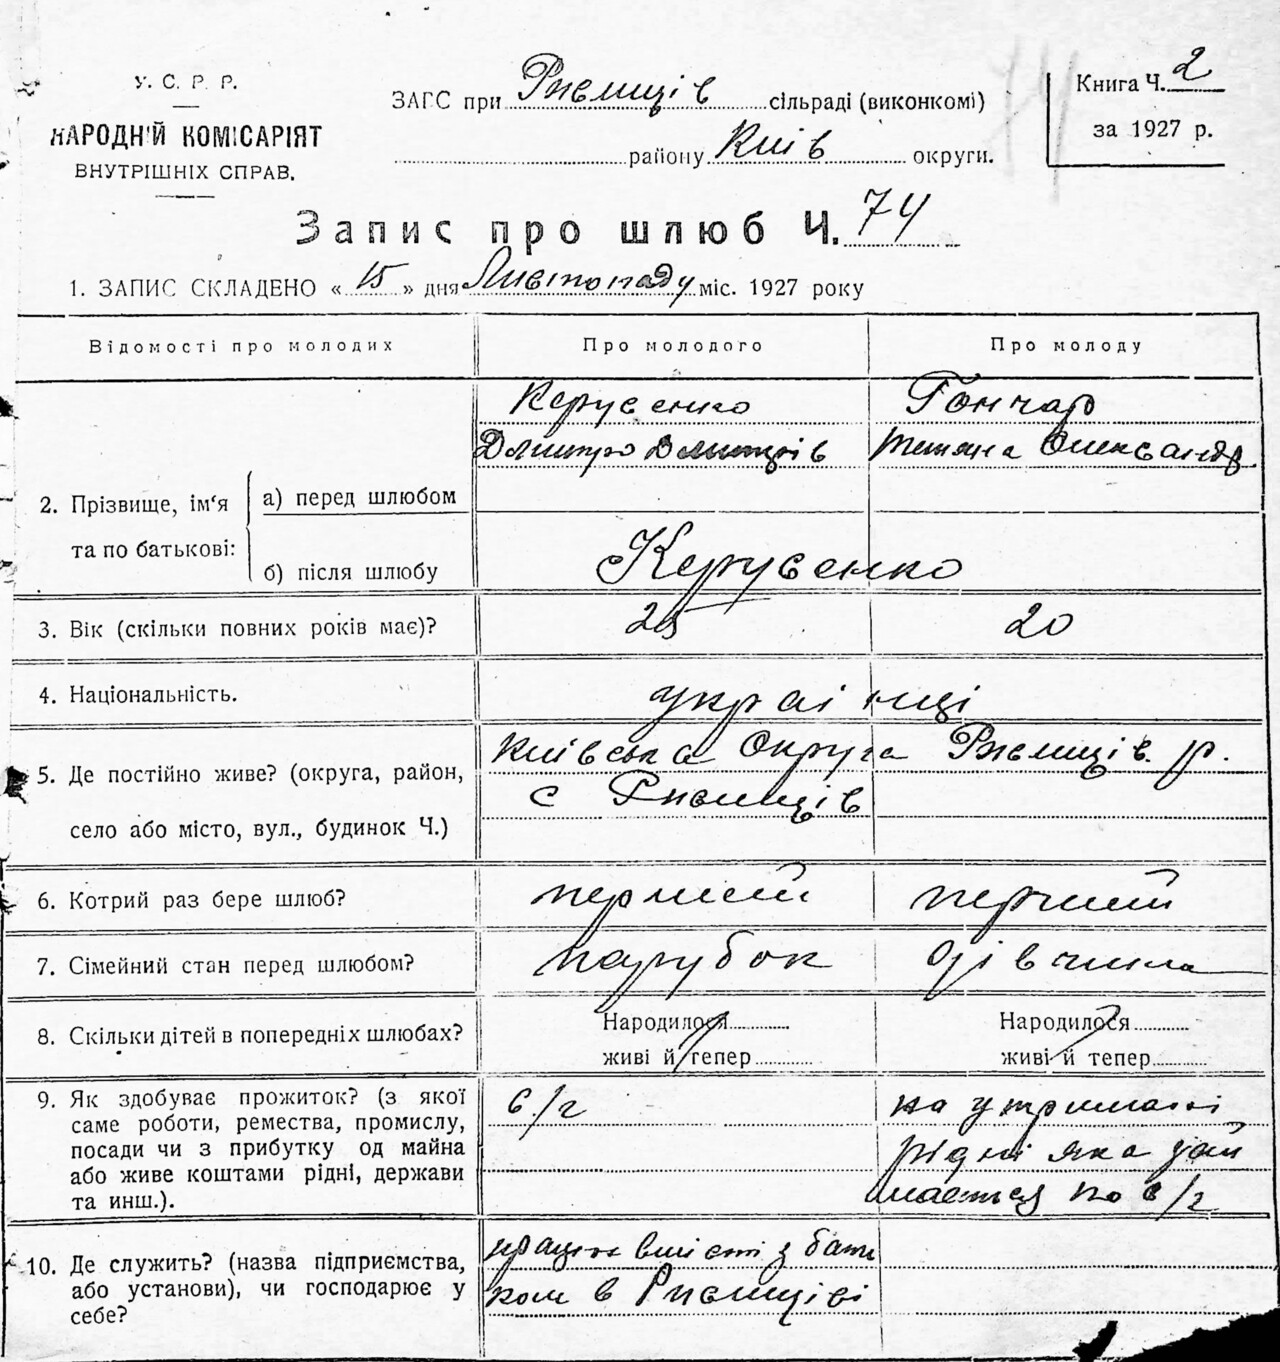 У. С. Р. Р.
НАРОДНІЙ КОМІСАРІЯТ
ВНУТРІШНІХ СПРАВ.
ЗАГС при Ржищів сільраді (виконкомі)
району Київ округи.
Книга Ч. 2
за 1927 р.
Запис про шлюб Ч. 74
1. ЗАПИС СКЛАДЕНО « 15 » дня Листопаду міс. 1927 року
Відомості про молодих
Про молодого
Про молоду
2. Прізвище, ім‘я та по батькові:
а) перед шлюбом
Дмитро Дмитрів
Гончар
Тетяна Олександр.
б) після шлюбу
3. Вік (скільки повних років має)?
25
20
4. Національність.
українці
5. Де постійно живе? (округа, район,
село або місто, вул., будинок Ч.)
Київська Округа Ржищів. р.
с Ржищів
6. Котрий раз бере шлюб?
перший
перший
7. Сімейний стан перед шлюбом?
парубок
дівчина
8. Скільки дітей в попередніх шлюбах?
Народилося
живі й тепер
Народилося
живі й тепер
9. Як здобуває прожиток? (з якої
саме роботи, ремества, промислу,
посади чи з прибутку од майна
або живе коштами рідні, держави
та инш.).
с/г
на утриманні
рідні яка зай
мається по с/г
10. Де служить? (назва підприємства,
або установи), чи господарює у
себе?
працює вмісті з бать
ком в Ржищіві